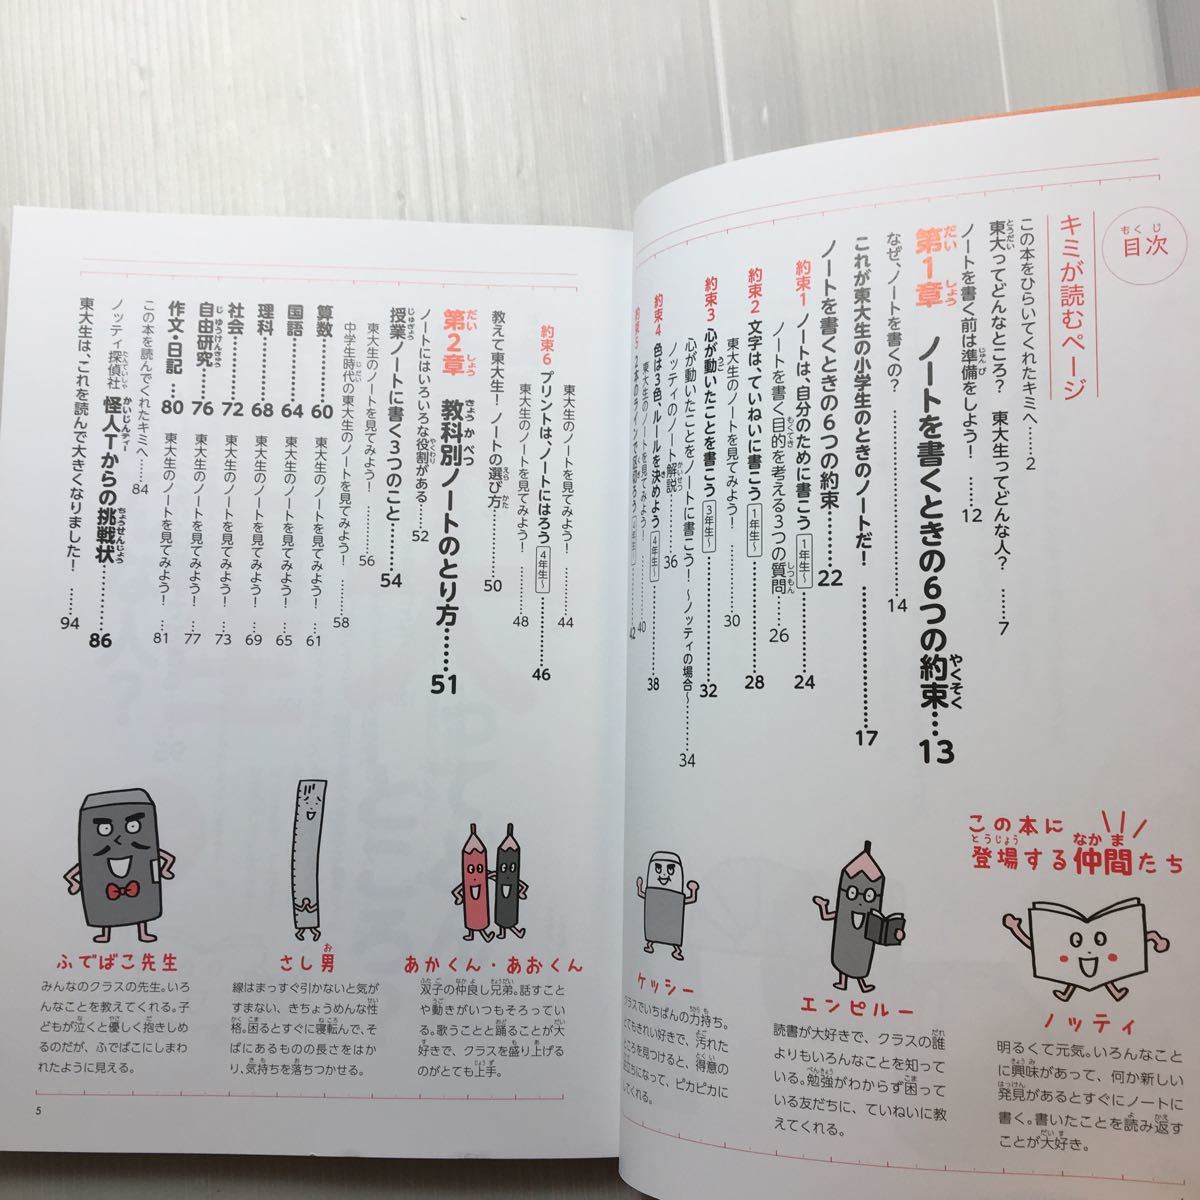 目次
キミが読むページ
この本をひらいてくれたキミへ……2
東大ってどんなところ? 東大生ってどんな人?……7
ノートを書く前は準備をしよう!……12
第1章 ノートを書くときの6つの約束…13
なぜ、ノートを書くの?……14
これが東大生の小学生のときのノートだ!……17
ノートを書くときの6つの約束……22
約束1 ノートは、自分のために書こう 1年生〜……24
ノートを書く目的を考える3つの質問……26
約束2 文字は、ていねいに書こう 1年生〜……28
東大生のノートを見てみよう!……30
約束3 心が動いたことを書こう 3年生〜……32
心が動いたことをノートに書こう!〜ノッティの場合〜……34
ノッティのノート解説……36
約束4 色は3色、ルールを決めよう 4年生〜……38
東大生のノートを見てみよう!……40
約束5 2本のラインで区切ろう……42
東大生のノートを見てみよう!……44
約束6 プリントは、ノートにはろう 4年生〜……46
東大生のノートを見てみよう!……48
教えて東大生!ノートの選び方……50
第2章 教科別ノートのとり方……51
ノートにはいろいろな役割がある……52
授業ノートに書く3つのこと……54
東大生のノートを見てみよう!……56
中学生時代の東大生のノートを見てみよう!……58
算数……60 東大生のノートを見てみよう!……61
国語……64 東大生のノートを見てみよう!……65
理科……68 東大生のノートを見てみよう!……69
社会……72 東大生のノートを見てみよう!……73
自由研究……76 東大生のノートを見てみよう!……77
作文・日記…80 東大生のノートを見てみよう!……81
この本を読んでくれたキミへ……84
ノッティ探偵社 怪人Tからの挑戦状……86
東大生は、これを読んで大きくなりました!……94
この本に
登場する仲間たち
ノッティ
明るくて元気。いろんなこと
に興味があって、何か新しい
発見があるとすぐにノートに
書く。書いたことを読み返す
ことが大好き。
エンピルー
読書が大好きで、クラスの誰
よりもいろんなことを知って
いる。勉強がわからず困って
いる友だちに、ていねいに教
えてくれる。
ケッシー
クラスでいちばんの力持ち。
とてもきれい好きで、汚れた
ところを見つけると、得意の
になって、ピカピカに
してくれる。
あかくん・あおくん
双子の仲良し兄弟。話すこと
や動きがいつもそろってい
る。歌うことと踊ることが大
好きで、クラスを盛り上げる
のがとても上手。
さし男
線はまっすぐ引かないと気が
すまない、きちょうめんな性
格。困るとすぐに寝転んで、そ
ばにあるものの長さをはか
り、気持ちを落ちつかせる。
ふでばこ先生
みんなのクラスの先生。いろ
んなことを教えてくれる。子
どもが泣くと優しく抱きしめ
るのだが、ふでばこにしまわ
れたように見える。
5